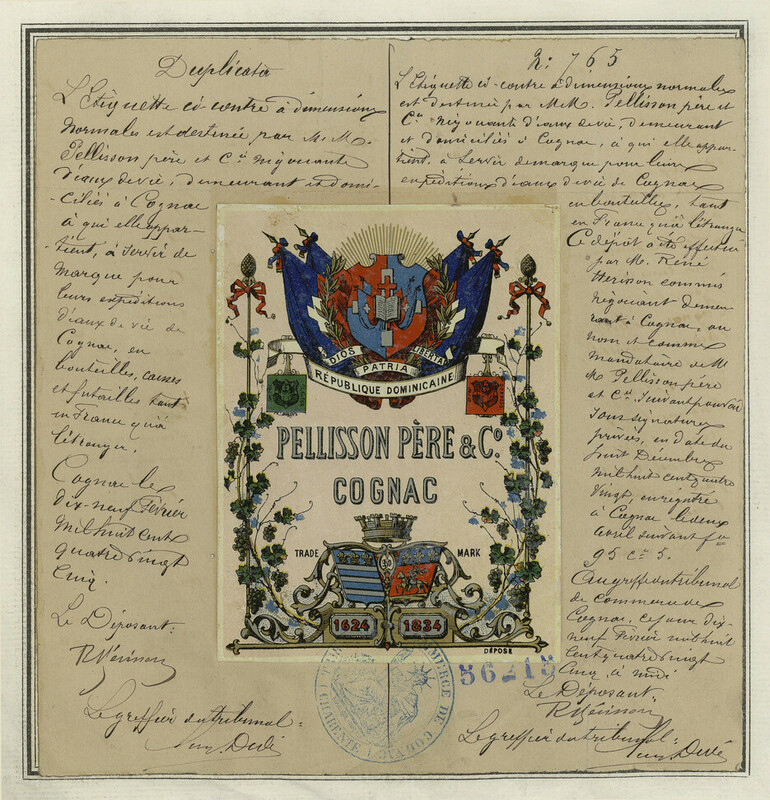 Duplicata
L'Etiquette ci-contre à dimensions
normales est destinée par M. M.
Pellisson père et Cie négociants
d'eaux de vie, demeurant et domi-
-ciliés à Cognac
à qui elle appar-
tient, à servir de
marque pour
leurs expéditions
d'eaux de vie de
Cognac, en
bouteilles, caisses
et futailles tant
en France qu'à
l'étranger.
Cognac le
dix-neuf Février
mil huit cent
quatre vingt
cinq.
Le Déposant:
Le greffier du tribunal:
No 765
L'Etiquette ci-contre à dimensions normales
est destinée par M.M. Pellisson père et
Cie négociants d'eaux de vie, demeurant
et domiciliés à Cognac, à qui elle appar-
tient, à servir de marque pour leurs
expéditions d'eaux de vie de Cognac
en bouteilles, tant
en France qu'à l'étranger
Ce dépôt a été effectué
par M. René
Herisson commis
négociant demeu
rant à Cognac, au
nom et comme
mandataire de M
M. Pellisson père
et Cie suivant pouvoir
sous signatures
privées, en date du
huit Décembre
mil huit cent quatre
vingt, enregistré
à Cognac le deux
avril suivant fo
95 c. 5.
Au greffe du tribunal
de commerce de
Cognac, ce jour dix-
neuf Février mil huit
cent quatre vingt
cinq, à midi
Le Déposant:
Le greffier du tribunal:
DIOS PATRIA LIBERTAD
RÉPUBLIQUE DOMINICAINE
PELLISSON PÈRE & Co.
COGNAC
TRADE MARK
1624 1834
DÉPOSÉ
COMMERCE DE COGNAC
CHARENTE
56215